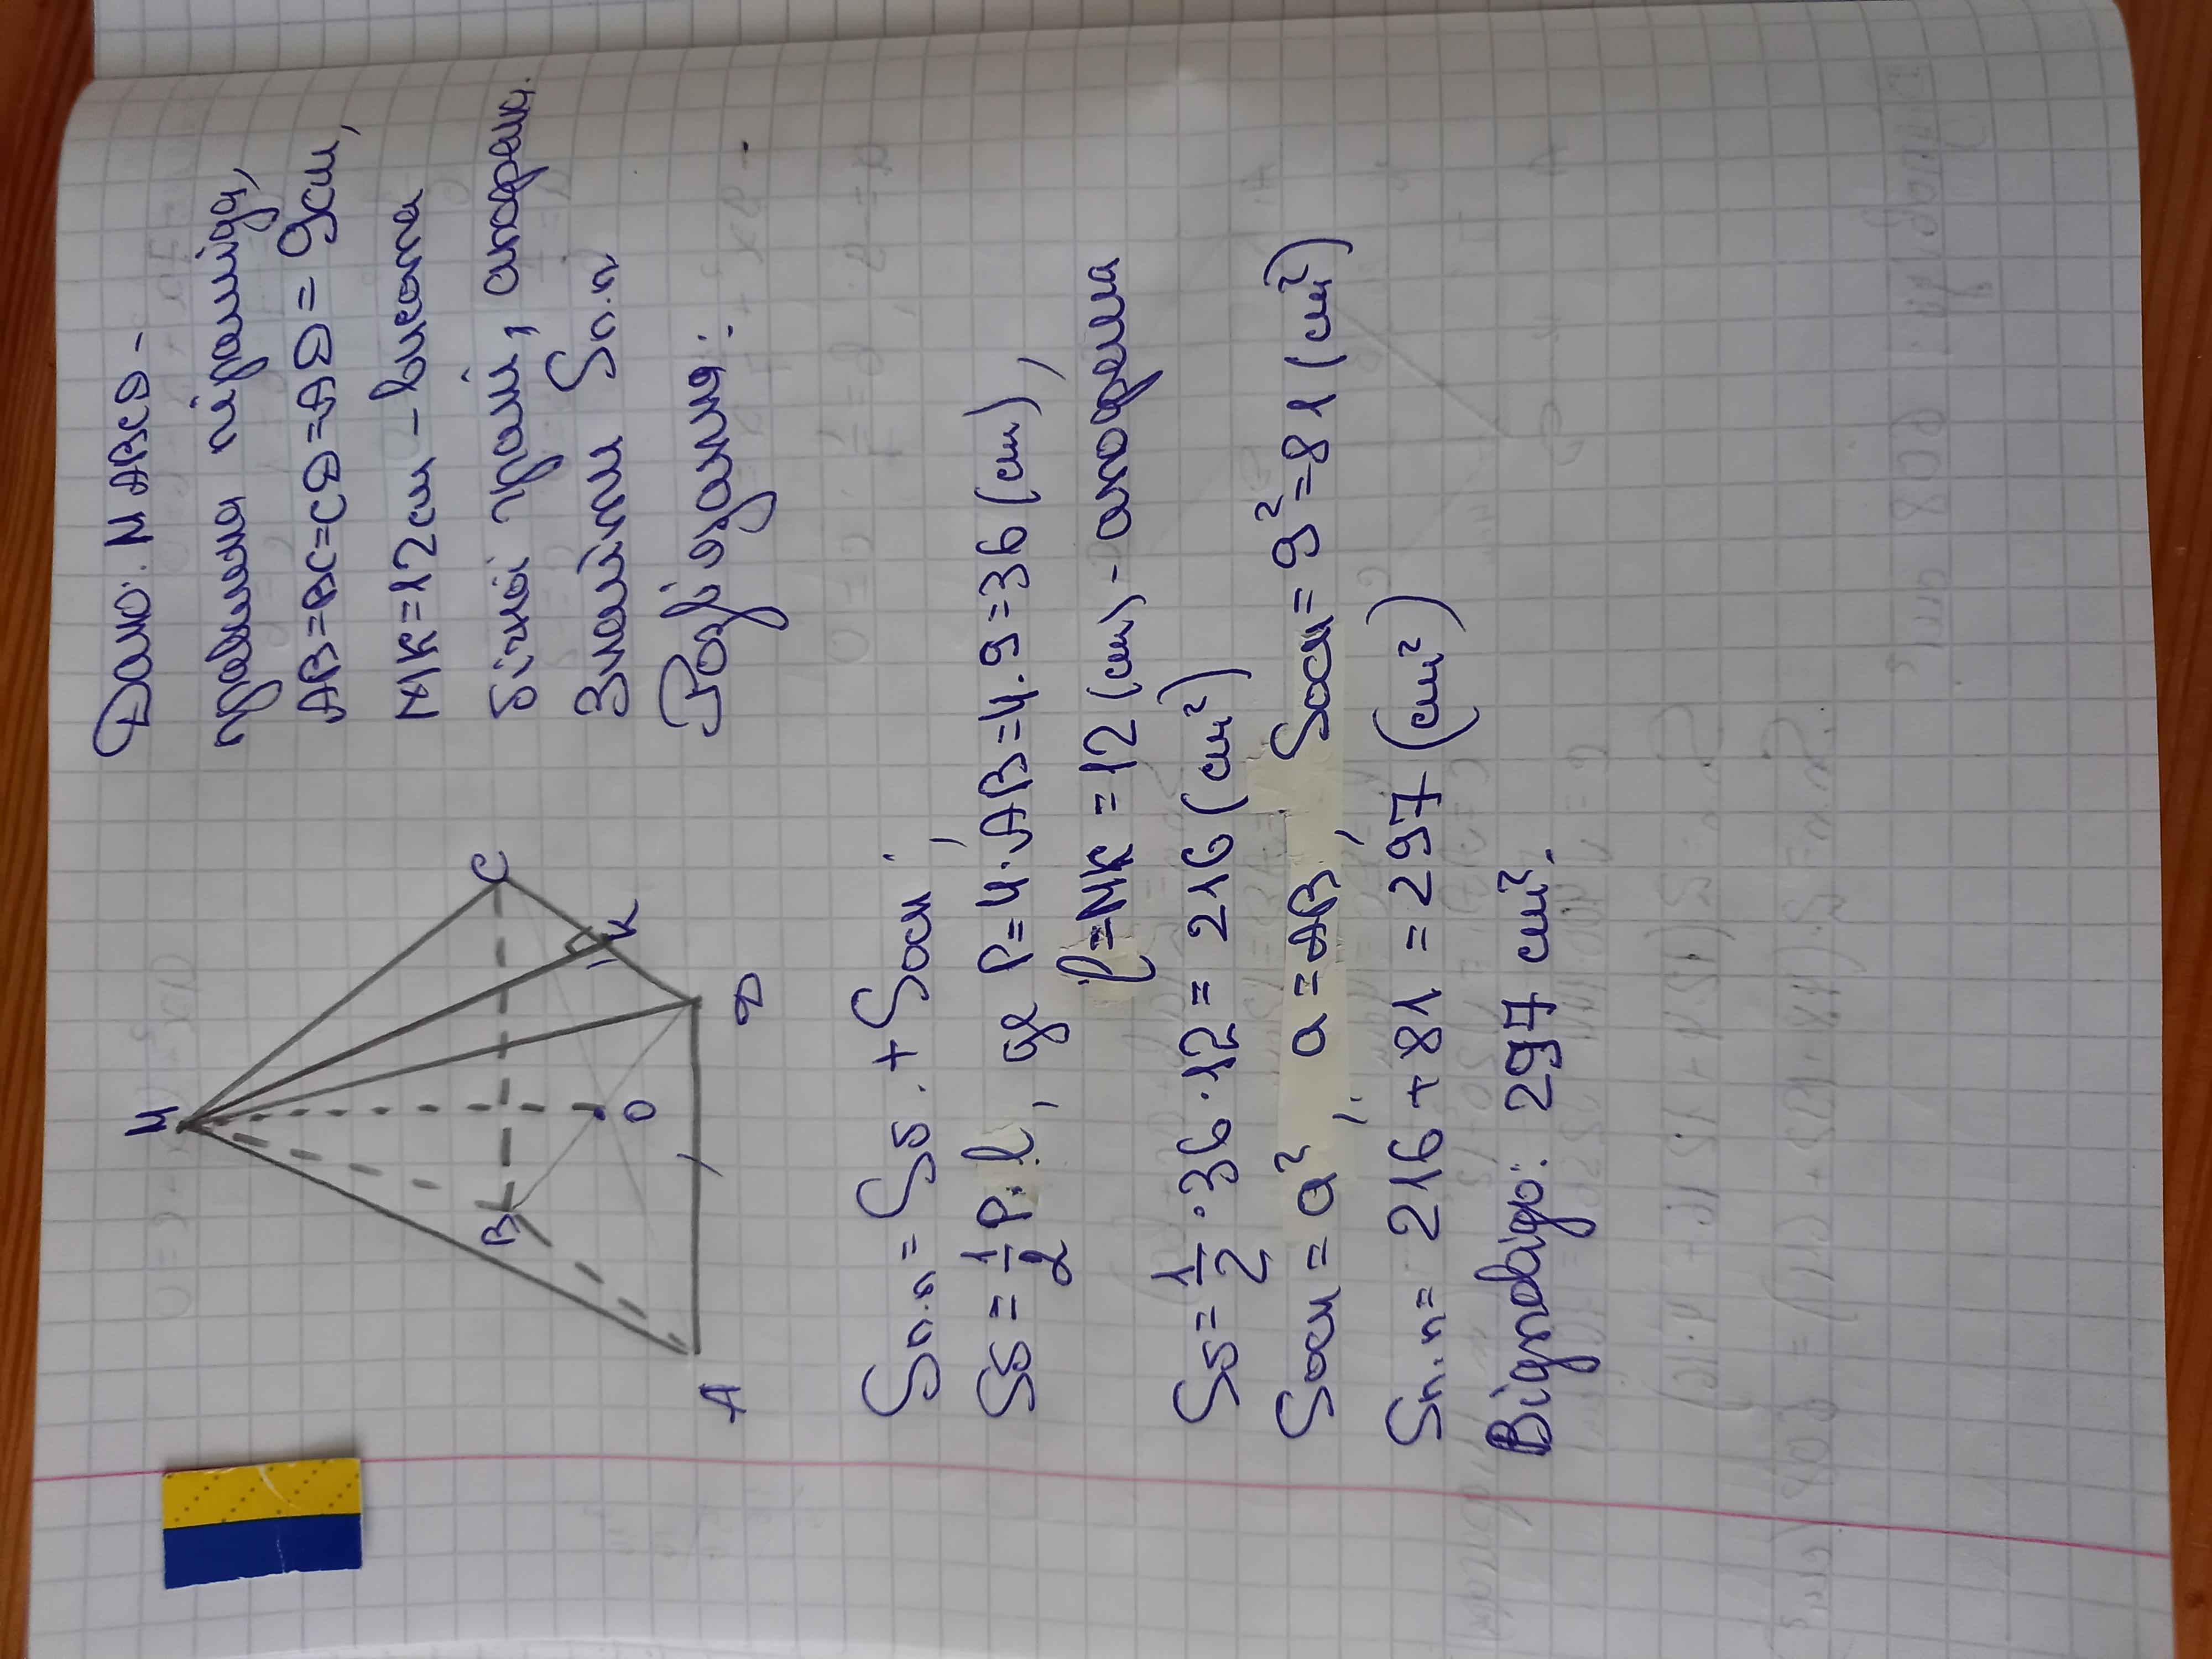 Дано: MABCD -
правильна піраміда,
AB=BC=CD=AD = 9см,
MK=12см - висота
бічної грані, апофема.
Знайти Sп.п
Розв'язання:
M
C
K
B
O
D
A
Sп.п = Sб. + Sосн;
Sб = 1/2 P·l, де P=4·AB=4·9=36 (см),
l=MK = 12 (см) - апофема
Sб = 1/2 · 36 · 12 = 216 (см²)
Sосн = a²; a=AB; Sосн = 9² = 81 (см²)
Sп.п = 216 + 81 = 297 (см²)
Відповідь: 297 см².